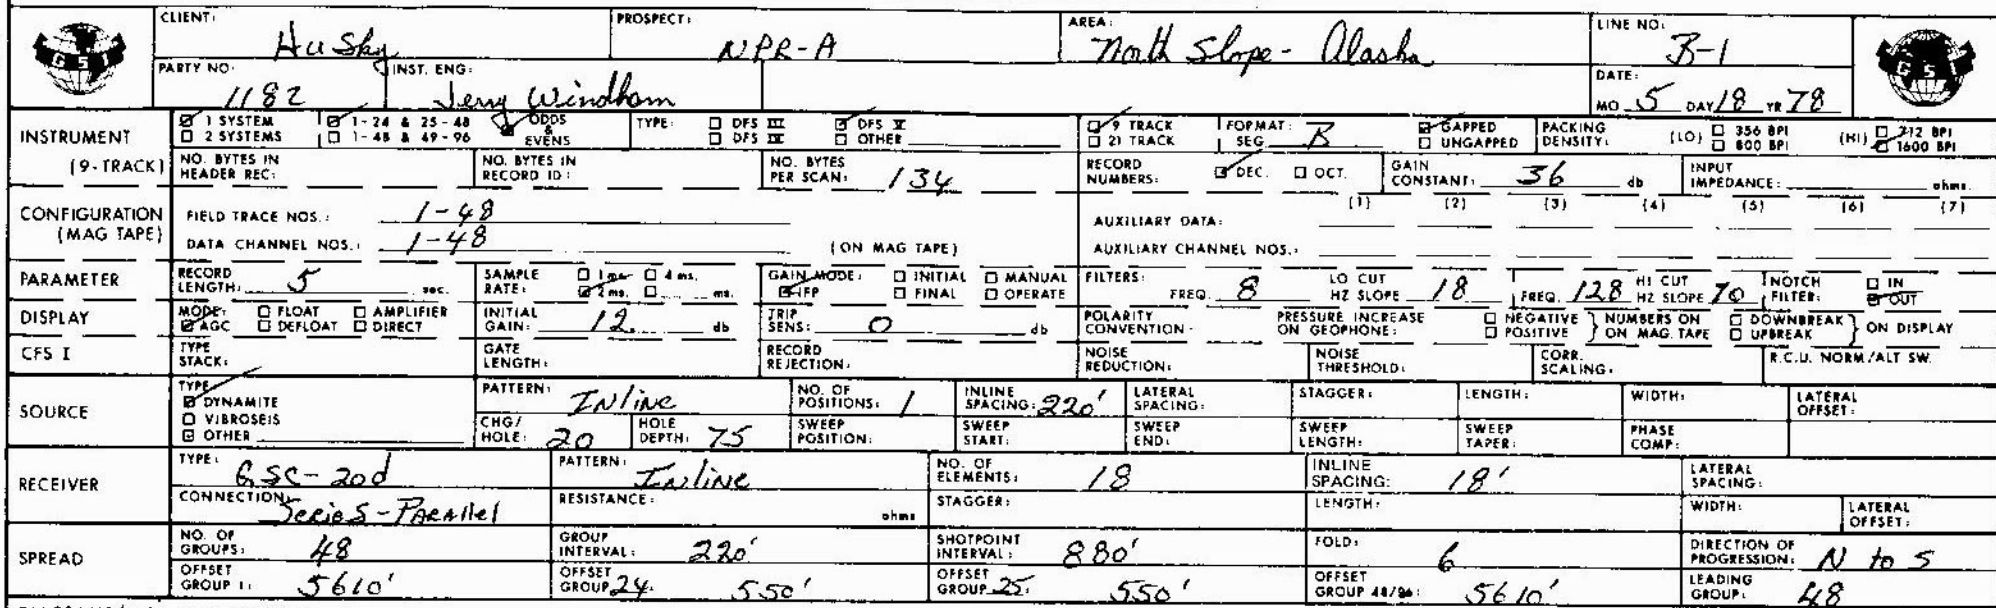 CLIENT: Husky PROSPECT: NPR-A AREA: North Slope - Alaska LINE NO: B-1
GSI GSI
PARTY NO: 1182 INST. ENG: Jerry Windham DATE: MO 5 DAY 18 YR 78
INSTRUMENT (9-TRACK)
1 SYSTEM 1-24 & 25-48 ODDS & EVENS TYPE: DFS III DFS V 9 TRACK FORMAT: SEG B GAPPED PACKING DENSITY: (LO) 356 BPI (HI) 712 BPI
2 SYSTEMS 1-48 & 49-96 DFS IV OTHER 21 TRACK UNGAPPED 800 BPI 1600 BPI
NO. BYTES IN HEADER REC: NO. BYTES IN RECORD ID: NO. BYTES PER SCAN: 134 RECORD NUMBERS: DEC. OCT. GAIN CONSTANT: 36 db INPUT IMPEDANCE: ohms.
CONFIGURATION (MAG TAPE)
FIELD TRACE NOS.: 1-48 AUXILIARY DATA: (1) (2) (3) (4) (5) (6) (7)
DATA CHANNEL NOS.: 1-48 (ON MAG TAPE) AUXILIARY CHANNEL NOS.:
PARAMETER RECORD LENGTH: 5 sec. SAMPLE RATE: 1 ms. 4 ms. 2 ms. ms. GAIN MODE: INITIAL MANUAL IFP FINAL OPERATE FILTERS: FREQ. 8 LO CUT HZ SLOPE 18 FREQ. 128 HI CUT HZ SLOPE 70 NOTCH FILTER: IN OUT
DISPLAY MODE: FLOAT AMPLIFIER AGC DEFLOAT DIRECT INITIAL GAIN: 12 db TRIP SENS: 0 db POLARITY CONVENTION: PRESSURE INCREASE ON GEOPHONE: NEGATIVE POSITIVE NUMBERS ON ON MAG. TAPE DOWNBREAK UPBREAK ON DISPLAY
CFS I TYPE STACK: GATE LENGTH: RECORD REJECTION: NOISE REDUCTION: NOISE THRESHOLD: CORR. SCALING: R.C.U. NORM/ALT SW.
SOURCE TYPE DYNAMITE VIBROSEIS OTHER
PATTERN: Inline NO. OF POSITIONS: 1 INLINE SPACING: 220' LATERAL SPACING: STAGGER: LENGTH: WIDTH: LATERAL OFFSET:
CHG/HOLE: 20 HOLE DEPTH: 75 SWEEP POSITION: SWEEP START: SWEEP END: SWEEP LENGTH: SWEEP TAPER: PHASE COMP:
RECEIVER TYPE: GSC-20d PATTERN: Inline NO. OF ELEMENTS: 18 INLINE SPACING: 18' LATERAL SPACING:
CONNECTION: Series-Parallel RESISTANCE: ohms STAGGER: LENGTH: WIDTH: LATERAL OFFSET:
SPREAD NO. OF GROUPS: 48 GROUP INTERVAL: 220' SHOTPOINT INTERVAL: 880' FOLD: 6 DIRECTION OF PROGRESSION: N to S
OFFSET GROUP 1: 5610' OFFSET GROUP 24: 550' OFFSET GROUP 25: 550' OFFSET GROUP 48/96: 5610' LEADING GROUP: 48